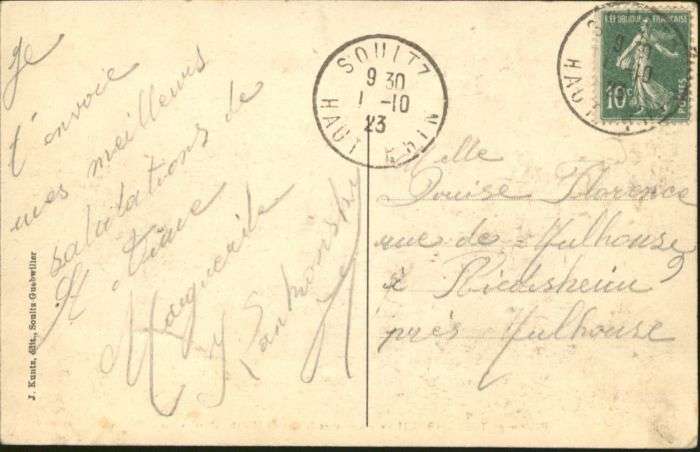 Je
t'envoie
mes meilleurs
salutations de
St Anne
Marguerite
J. Kuntz, édit., Soultz-Guebwiller
SOULTZ
9 30
1 -10
23
HAUT RHIN
REPUBLIQUE FRANÇAISE
10c
POSTES
Mlle
Louise Florence
rue de Mulhouse 9
à Riedisheim
près Mulhouse